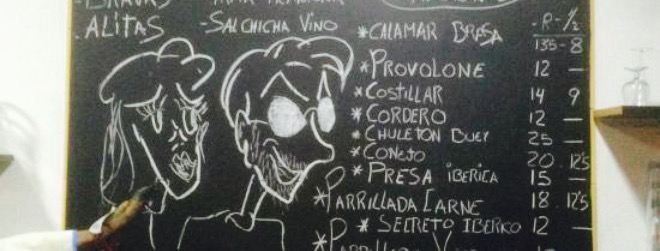 BRAVAS
- ALITAS
- SALCHICHA VINO
-R-½
* CALAMAR BRASA 13'5 - 8
* PROVOLONE 12 —
* COSTILLAR 14 9
* CORDERO 12 —
* CHULETON BUEY 25 —
* CONEJO 20 12'5
* PRESA IBERICA 15 —
* PARRILLADA CARNE 18 12'5
* SECRETO IBERICO 12 —